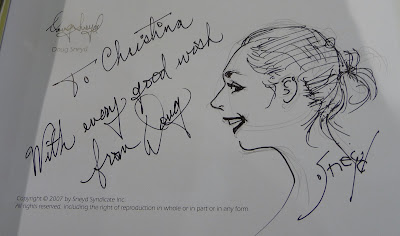 Doug Sneyd
Doug Sneyd
To Christina
With every good wish
from Doug
Sneyd
Copyright © 2007 by Sneyd Syndicate Inc.
All rights reserved, including the right of reproduction in whole or in part or in any form.